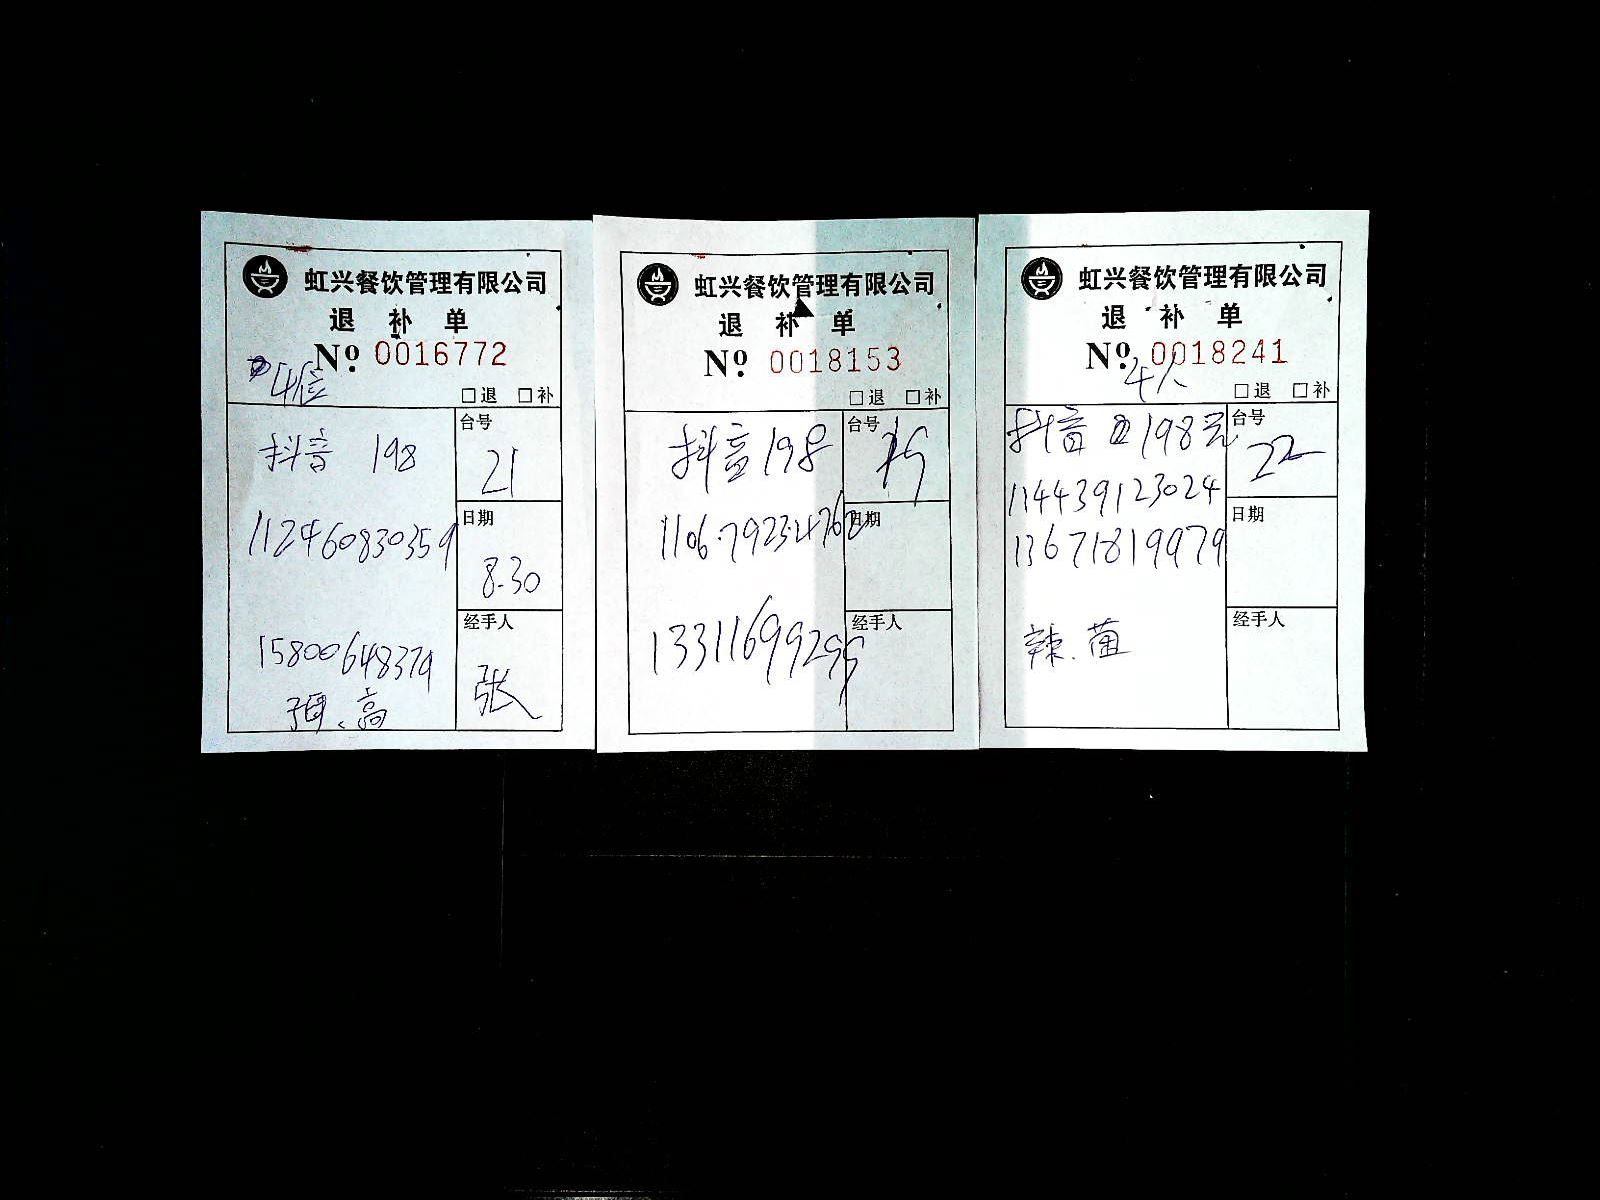 虹兴餐饮管理有限公司
退 补 单
Nº. 0016772
4位
□退 □补
抖音 198
台号
21
112460830359
日期
8.30
15800648379
经手人
张
虹兴餐饮管理有限公司
退 补 单
Nº. 0018153
□退 □补
抖音198
台号
110679234762
日期
13311699299
经手人
虹兴餐饮管理有限公司
退 补 单
Nº. 0018241
4人
□退 □补
抖音 198元
台号
22
114439123024
日期
13671819979
辣.菌
经手人